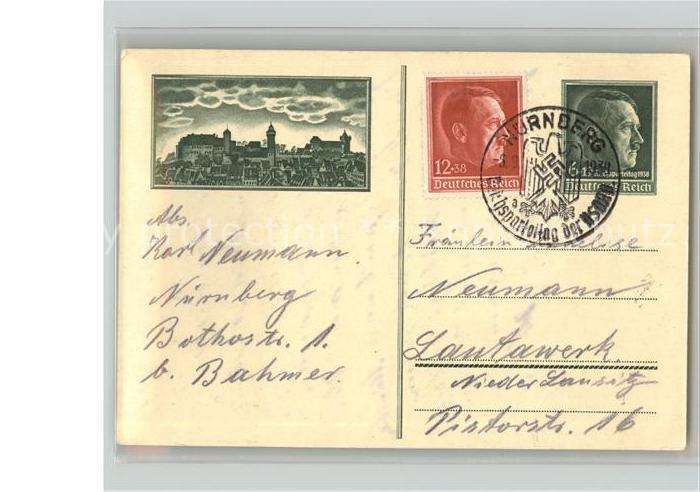 12+38
Deutsches Reich
6+19
Reichsparteitag 1938
Deutsches Reich
NÜRNBERG
1938
Reichsparteitag der NSDAP
Abs.
Karl Neumann
Nürnberg
Bothostr. 1.
b. Bahmer.
Fräulein
Neumann
Lautawerk
Nieder Lausitz
Pistorstr. 16